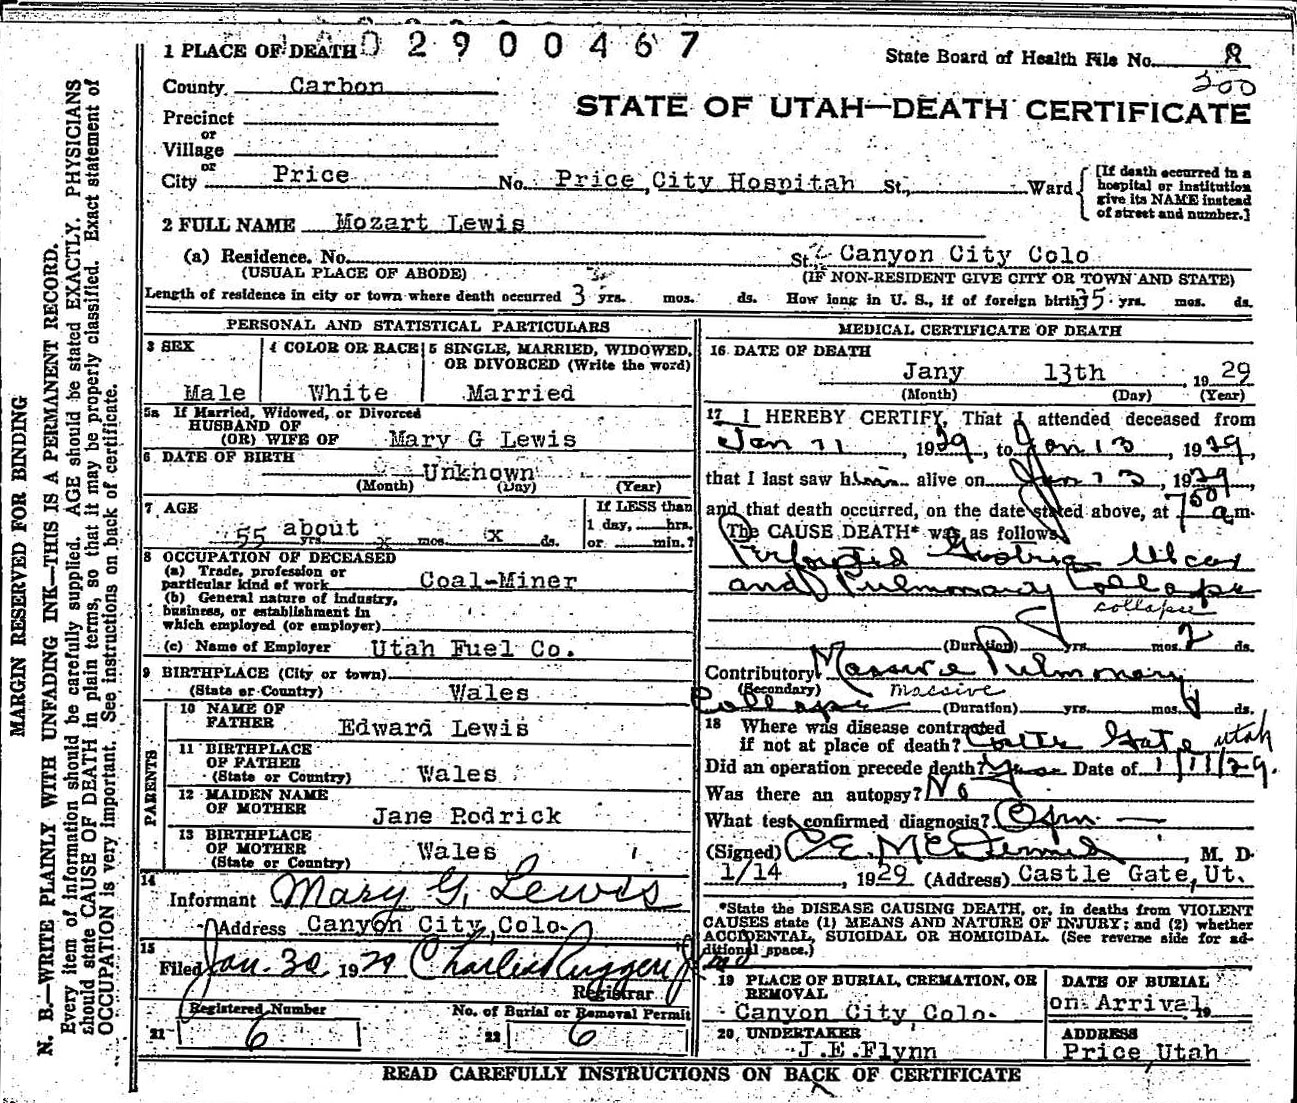 MARGIN RESERVED FOR BINDING
N. B.—WRITE PLAINLY WITH UNFADING INK—THIS IS A PERMANENT RECORD.
Every item of information should be carefully supplied. AGE should be stated EXACTLY. PHYSICIANS
should state CAUSE OF DEATH in plain terms, so that it may be properly classified. Exact statement of
OCCUPATION is very important. See instructions on back of certificate.
1 PLACE OF DEATH 02900467
State Board of Health File No. 8
200
County Carbon
STATE OF UTAH—DEATH CERTIFICATE
Precinct
or
Village
or
City Price No. Price City Hospitah St., Ward
[If death occurred in a
hospital or institution
give its NAME instead
of street and number.]
2 FULL NAME Mozart Lewis
(a) Residence. No. St., Canyon City Colo
(USUAL PLACE OF ABODE) (IF NON-RESIDENT GIVE CITY OR TOWN AND STATE)
Length of residence in city or town where death occurred 3 yrs. mos. ds. How long in U. S., if of foreign birth? 35 yrs. mos. ds.
PERSONAL AND STATISTICAL PARTICULARS
3 SEX
Male
4 COLOR OR RACE
White
5 SINGLE, MARRIED, WIDOWED,
OR DIVORCED (Write the word)
Married
5a If Married, Widowed, or Divorced
HUSBAND OF
(OR) WIFE OF Mary G Lewis
6 DATE OF BIRTH
Unknown
(Month) (Day) (Year)
7 AGE
55 about yrs. x mos. x ds.
If LESS than
1 day, hrs.
or min.?
8 OCCUPATION OF DECEASED
(a) Trade, profession or
particular kind of work Coal-Miner
(b) General nature of industry,
business, or establishment in
which employed (or employer)
(c) Name of Employer Utah Fuel Co.
9 BIRTHPLACE (City or town)
(State or Country) Wales
PARENTS
10 NAME OF
FATHER Edward Lewis
11 BIRTHPLACE
OF FATHER
(State or Country) Wales
12 MAIDEN NAME
OF MOTHER Jane Rodrick
13 BIRTHPLACE
OF MOTHER
(State or Country) Wales
14
Informant Mary G. Lewis
Address Canyon City, Colo.
15
Filed Jan. 30 1929 Charles Ruggeri
Registrar
Registered Number
21 6
No. of Burial or Removal Permit
22 6
MEDICAL CERTIFICATE OF DEATH
16 DATE OF DEATH
Jany 13th, 19 29
(Month) (Day) (Year)
17 I HEREBY CERTIFY, That I attended deceased from
Jan 11, 1929, to Jan 13, 1929,
that I last saw him alive on Jan 13, 1929
and that death occurred, on the date stated above, at 750 a m.
The CAUSE DEATH* was as follows
Perforated Gastric Ulcer
and Pulmonary Collapse
collapse
(Duration) yrs. mos. 2 ds.
Contributory Massive Pulmonary
(Secondary) massive
Collapse (Duration) yrs. mos. ds.
18 Where was disease contracted
if not at place of death? Castle Gate utah
Did an operation precede death? Yes Date of 1/11/29.
Was there an autopsy? No
What test confirmed diagnosis? Opn —
(Signed) C E. McDermid, M. D.
1/14, 1929 (Address) Castle Gate, Ut.
*State the DISEASE CAUSING DEATH, or, in deaths from VIOLENT
CAUSES state (1) MEANS AND NATURE OF INJURY; and (2) whether
ACCIDENTAL, SUICIDAL OR HOMICIDAL. (See reverse side for ad-
ditional space.)
19 PLACE OF BURIAL, CREMATION, OR
REMOVAL
Canyon City, Colo.
DATE OF BURIAL
on Arrival 19
20 UNDERTAKER
J.E.Flynn
ADDRESS
Price, Utah
READ CAREFULLY INSTRUCTIONS ON BACK OF CERTIFICATE